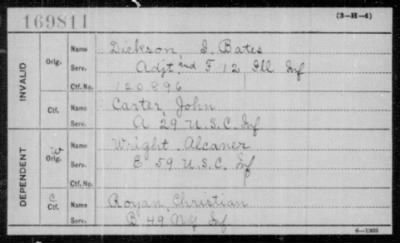 169811
(3-H-4)
INVALID
Orig.
Name Dickson, S. Bates
Serv. Adjt and F 12 Ill Inf
Ctf. No. 120,896
Ctf.
Name Carter, John
Serv. A 29 U.S.C. Inf
DEPENDENT
W
Orig.
Name Wright, Alcaner
Serv. E 59 U.S.C. Inf
Ctf. No.
C
Ctf.
Name Royan, Christian
Serv. B 49 Ny Inf
6-1303